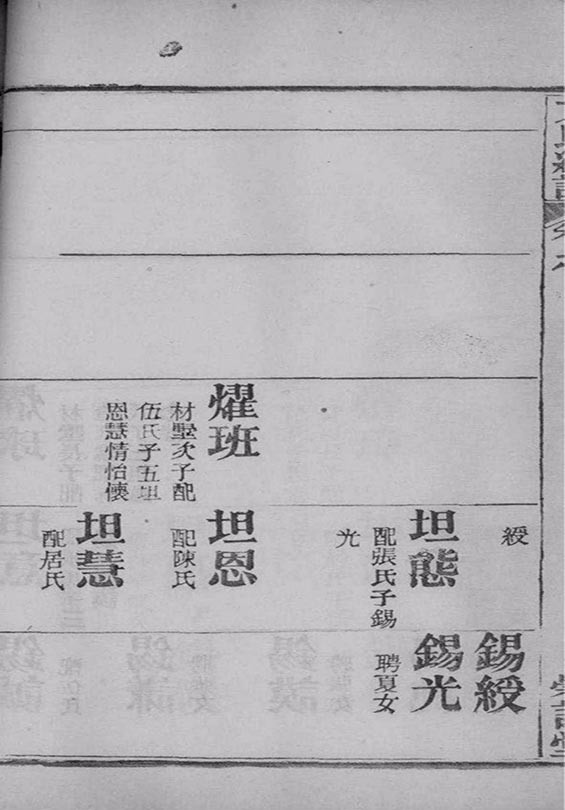 燿班
材墅次子配
伍氏子五坦
恩慧情怡懷
綬
坦態
配張氏子錫
光
坦恩
配陳氏
坦慧
配居氏
錫綬
錫光
聘夏女